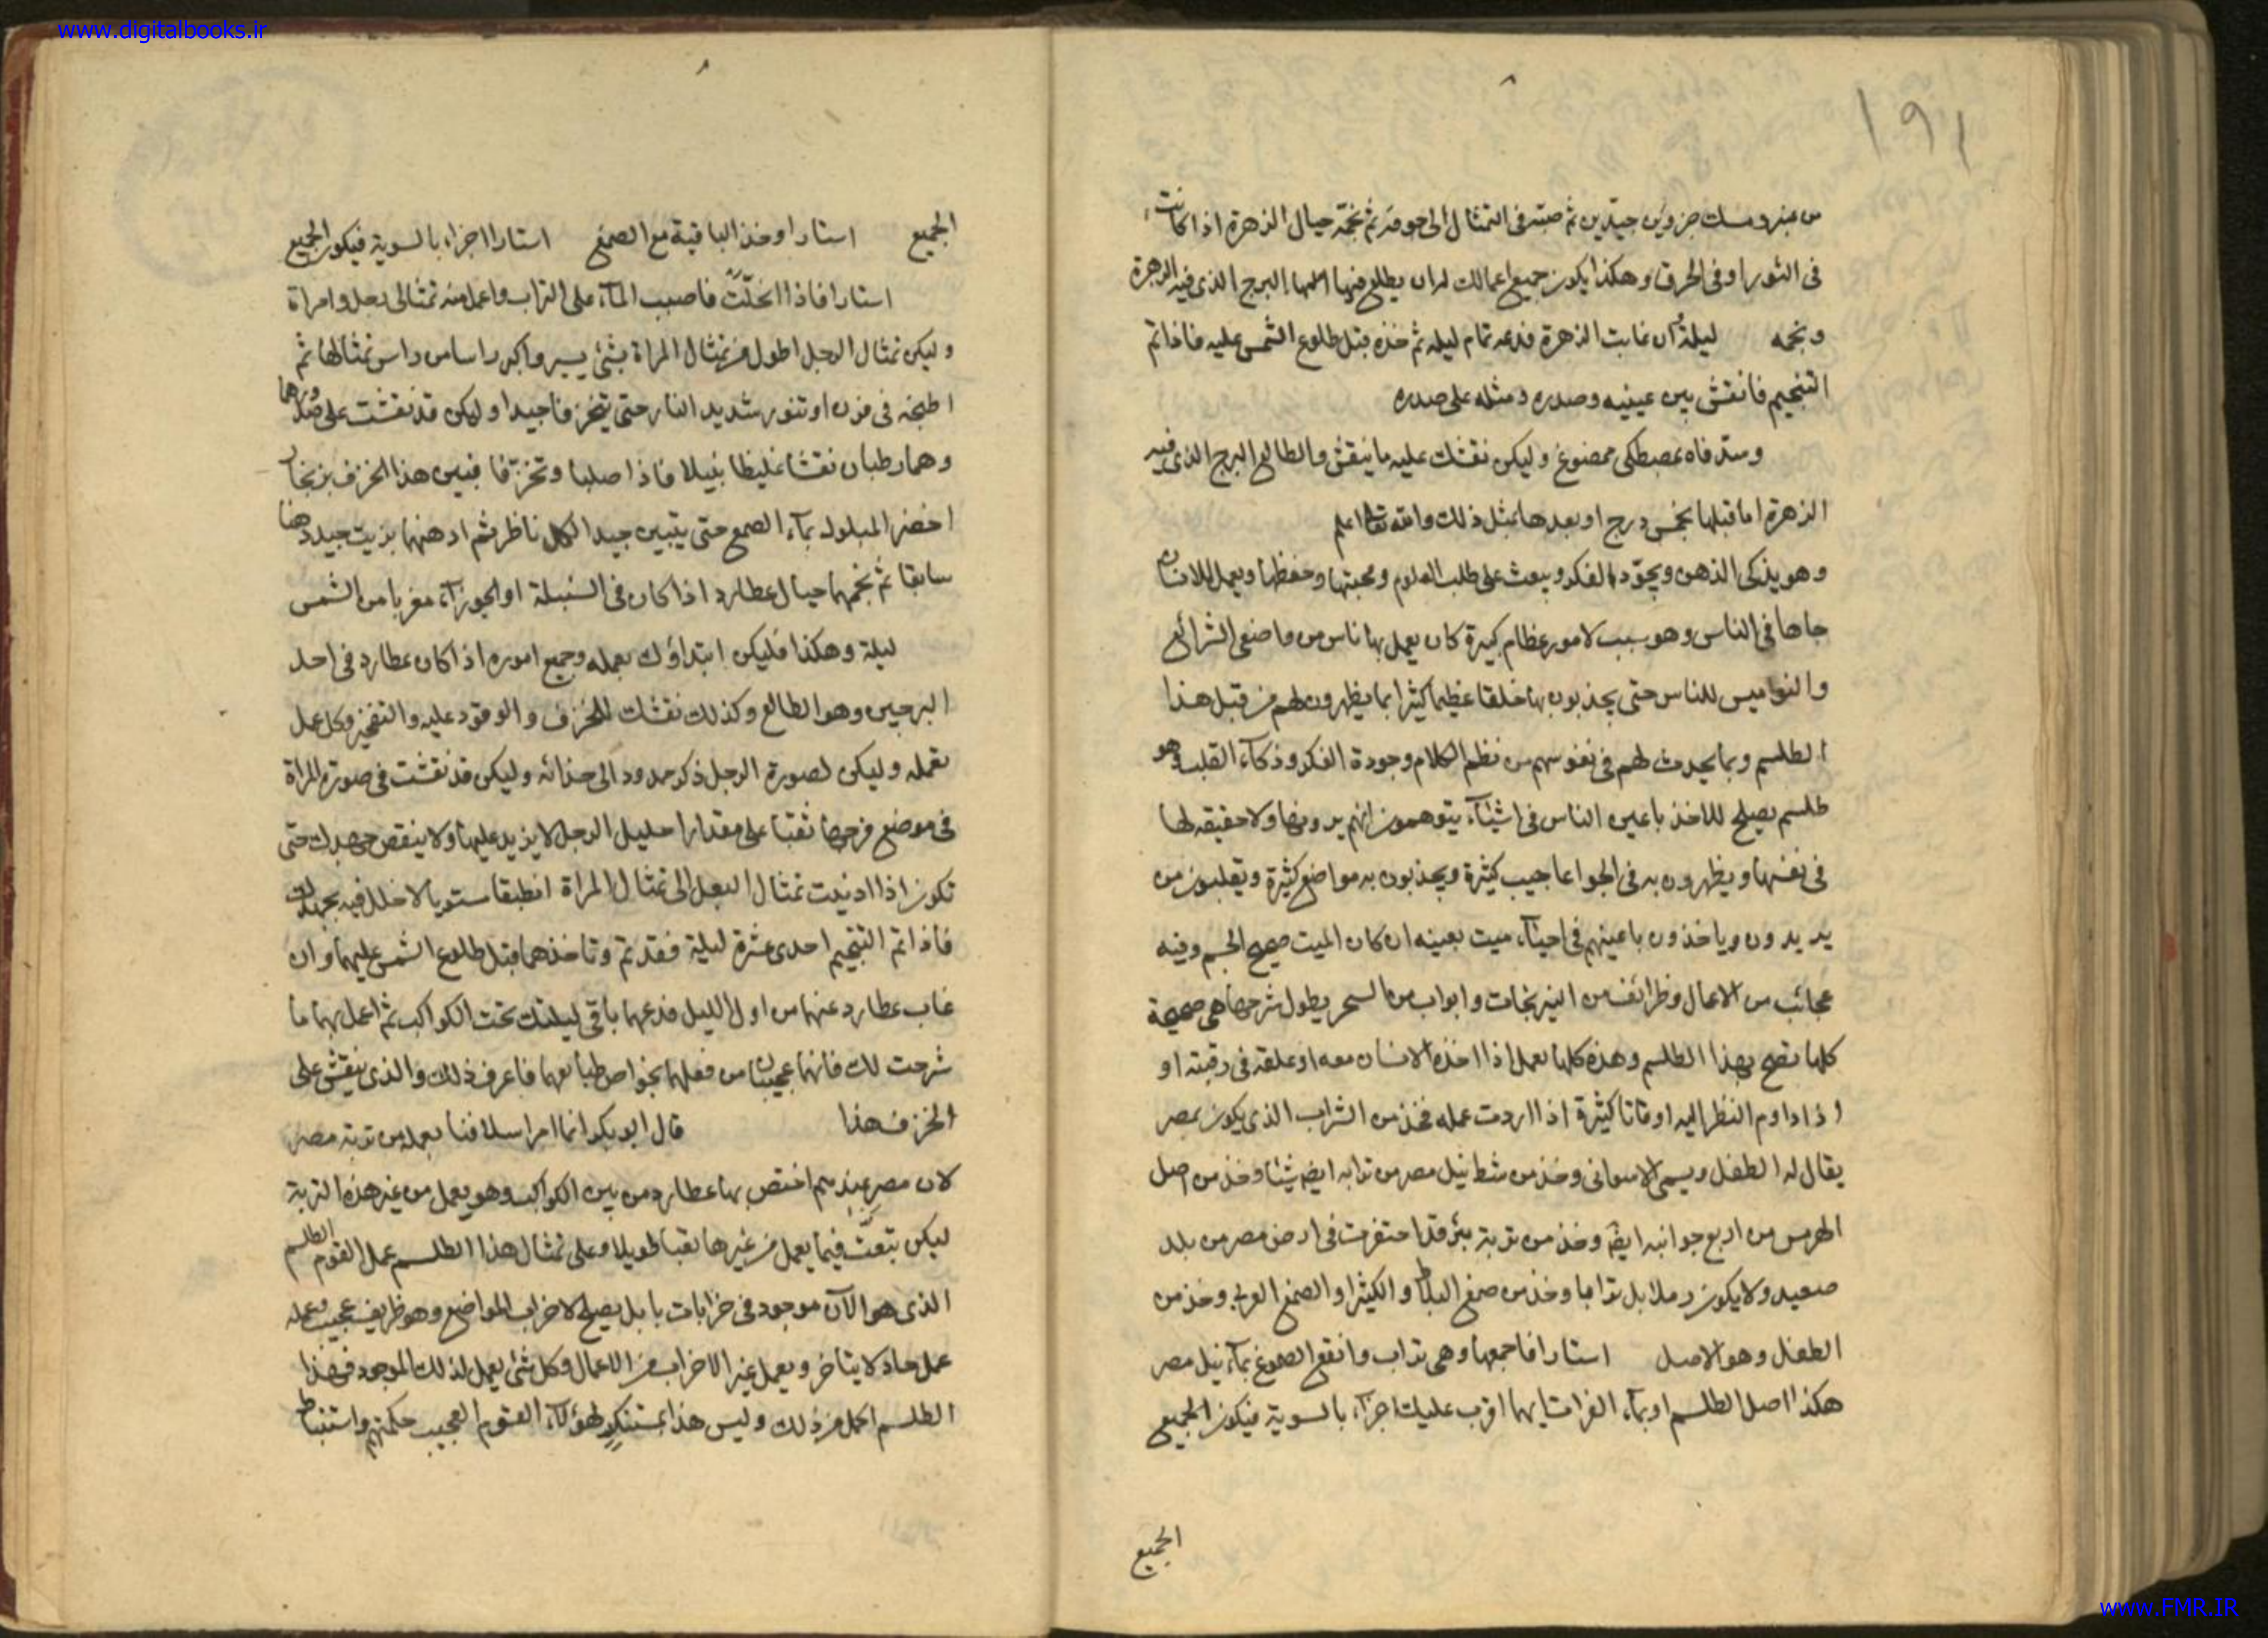 www.digitalbooks.ir
١٩١
من عنبر ومسك جزوين جيدين ثم صبه فى التمثال الى جوفه ثم نجمه حيال الزهرة اذا كانت
فى الثور او فى الحرق وهكذا يكون جميع اعمالك لها ان يطلع فيها البرج الذى فيه الزهرة
ونجمه ليلة ان غابت الزهرة فدعه تمام ليله ثم خذه قبل طلوع الشمس عليه فاذا تم
التنجيم فانقش بين عينيه وصدره ومثله على صدره
وسد فاه بمصطكى ممضوغ وليكن نقشك عليه ما ينقش والطالع البرج الذى فيه
الزهرة اما قبلها بخمس درج او بعدها بمثل ذلك والله تعالى اعلم
وهو يذكى الذهن ويجوّد الفكر ويبعث على طلب العلوم ومحبتها وحفظها ويعمل للانسان
جاها فى الناس وهو سبب لامور عظام كبيرة كان يعمل بها ناس من واضعى الشرائع
والنواميس للناس حتى يجذبون بها خلقا عظيما كثيرا بما يظهرون لهم من قبل هذا
الطلسم وبما يحدث لهم فى نفوسهم من نظم الكلام وجودة الفكر وذكاء القلب وهو
طلسم يصلح للاخذ باعين الناس فى اشياء يتوهمون انهم يرونها ولا حقيقه لها
فى نفسها ويظهرون به فى الجو اعاجيب كثيرة ويجذبون به مواضع كثيرة ويقلبون من
يريدون وياخذون باعينهم فى احياء ميت بعينه ان كان الميت صحيح الجسم وفيه
عجائب من الاعمال وظرائف من النيرنجات وابواب من السحر يطول شرحها هى صحيحة
كلها تصح بهذا الطلسم وهذه كلها يعمل اذا اخذه الانسان معه او علقه فى رقبته او
اذا داوم النظر اليه اوقاتا كثيرة اذا اردت عمله فخذ من التراب الذى يكون بمصر
يقال له الطفل ويسمى الاسوانى وخذ من شط نيل مصر من ترابه ايضا شيئا وخذ من اصل
الهرمين من اربع جوانبه ايضا وخذ من تربة بئر قد احتفرت فى ارض مصر من بلد
صعيد ولا يكون رملا بل ترابا وخذ من صمغ البلاط والكثيرا والصمغ العربى وخذ من
الطفل وهو الاصل استارا فاجمعها وهى تراب وانقع الصموغ بماء نيل مصر
هكذا اصل الطلسم او بماء الفرات ايهما اقرب عليك اجزاء بالسوية فيكون الجميع
الجميع
الجميع استارا وخذ الباقية مع الصمغ استارا اجزاء بالسوية فيكون الجميع
استارا فاذا انحلّت فاصبب الماء على التراب واعمل منه تمثالى رجل وامراة
وليكن تمثال الرجل اطول من تمثال المراة بشئ يسير واكبر راسا من راس تمثالها ثم
اطبخه فى فرن او تنور شديد النار حتى يتخزفا جيدا وليكن قد نقشت على صدرهما
وهما رطبان نقشا غليظا نبيلا فاذا صلبا وتخزّفا فبيس هذا الخزف بزنجار
اخضر المبلول بماء الصمغ حتى يتبين جيدا لكل ناظر ثم ادهنهما بزيت جيد دهنا
سابقا ثم نجمهما حيال عطارد اذا كان فى السنبلة او الجوزاء مغربا من الشمس
ليلة وهكذا فليكن ابتداؤك بعمله وجميع اموره اذا كان عطارد فى احد
البرجين وهو الطالع وكذلك نقشك للخزف والوقود عليه والتنجيم وكل عمل
تعمله وليكن لصورة الرجل ذكر ممدود الى حذائه وليكن قد نقشت فى صورة المراة
فى موضع فرجها ثقبا على مقدار احليل الرجل لا يزيد عليها ولا ينقص جهدك حتى
تكون اذا ادنيت تمثال الرجل الى تمثال المراة انطبقا مستويا لا خلل فيه بجهدك
فاذا تم التنجيم احدى عشرة ليلة فقد تم وتاخذهما قبل طلوع الشمس عليهما وان
غاب عطارد عنهما من اول الليل فدعهما باقى ليلتك تحت الكواكب ثم اعمل بهما ما
شرحت لك فانهما عجيبان من فعلهما بخواص طبائعهما فاعرف ذلك والذى ينقش على
الخزف هذا قال ابو بكر انما امر اسلافنا بعمله من تربة مصر
لان مصر عندهم اختص بها عطارد من بين الكواكب وهو يعمل من غير هذه التربة
ليكن يتعّب فيما يعمل من غيرها تعبا طويلا وعلى تمثال هذا الطلسم عمل القوم الطلسم
الذى هو الآن موجود فى خرابات بابل يصلح لاخراب المواضع وهو ظريف عجيب يعمله
عمل حاد لا يتاخر ويعمل غير الاخراب من الاعمال وكل شئ يعمل لذلك الموجود فهذا
الطلسم اكمل من ذلك وليس هذا بمستنكر لهؤلاء القوم العجيب حكمتهم واستنباط
www.FMR.IR